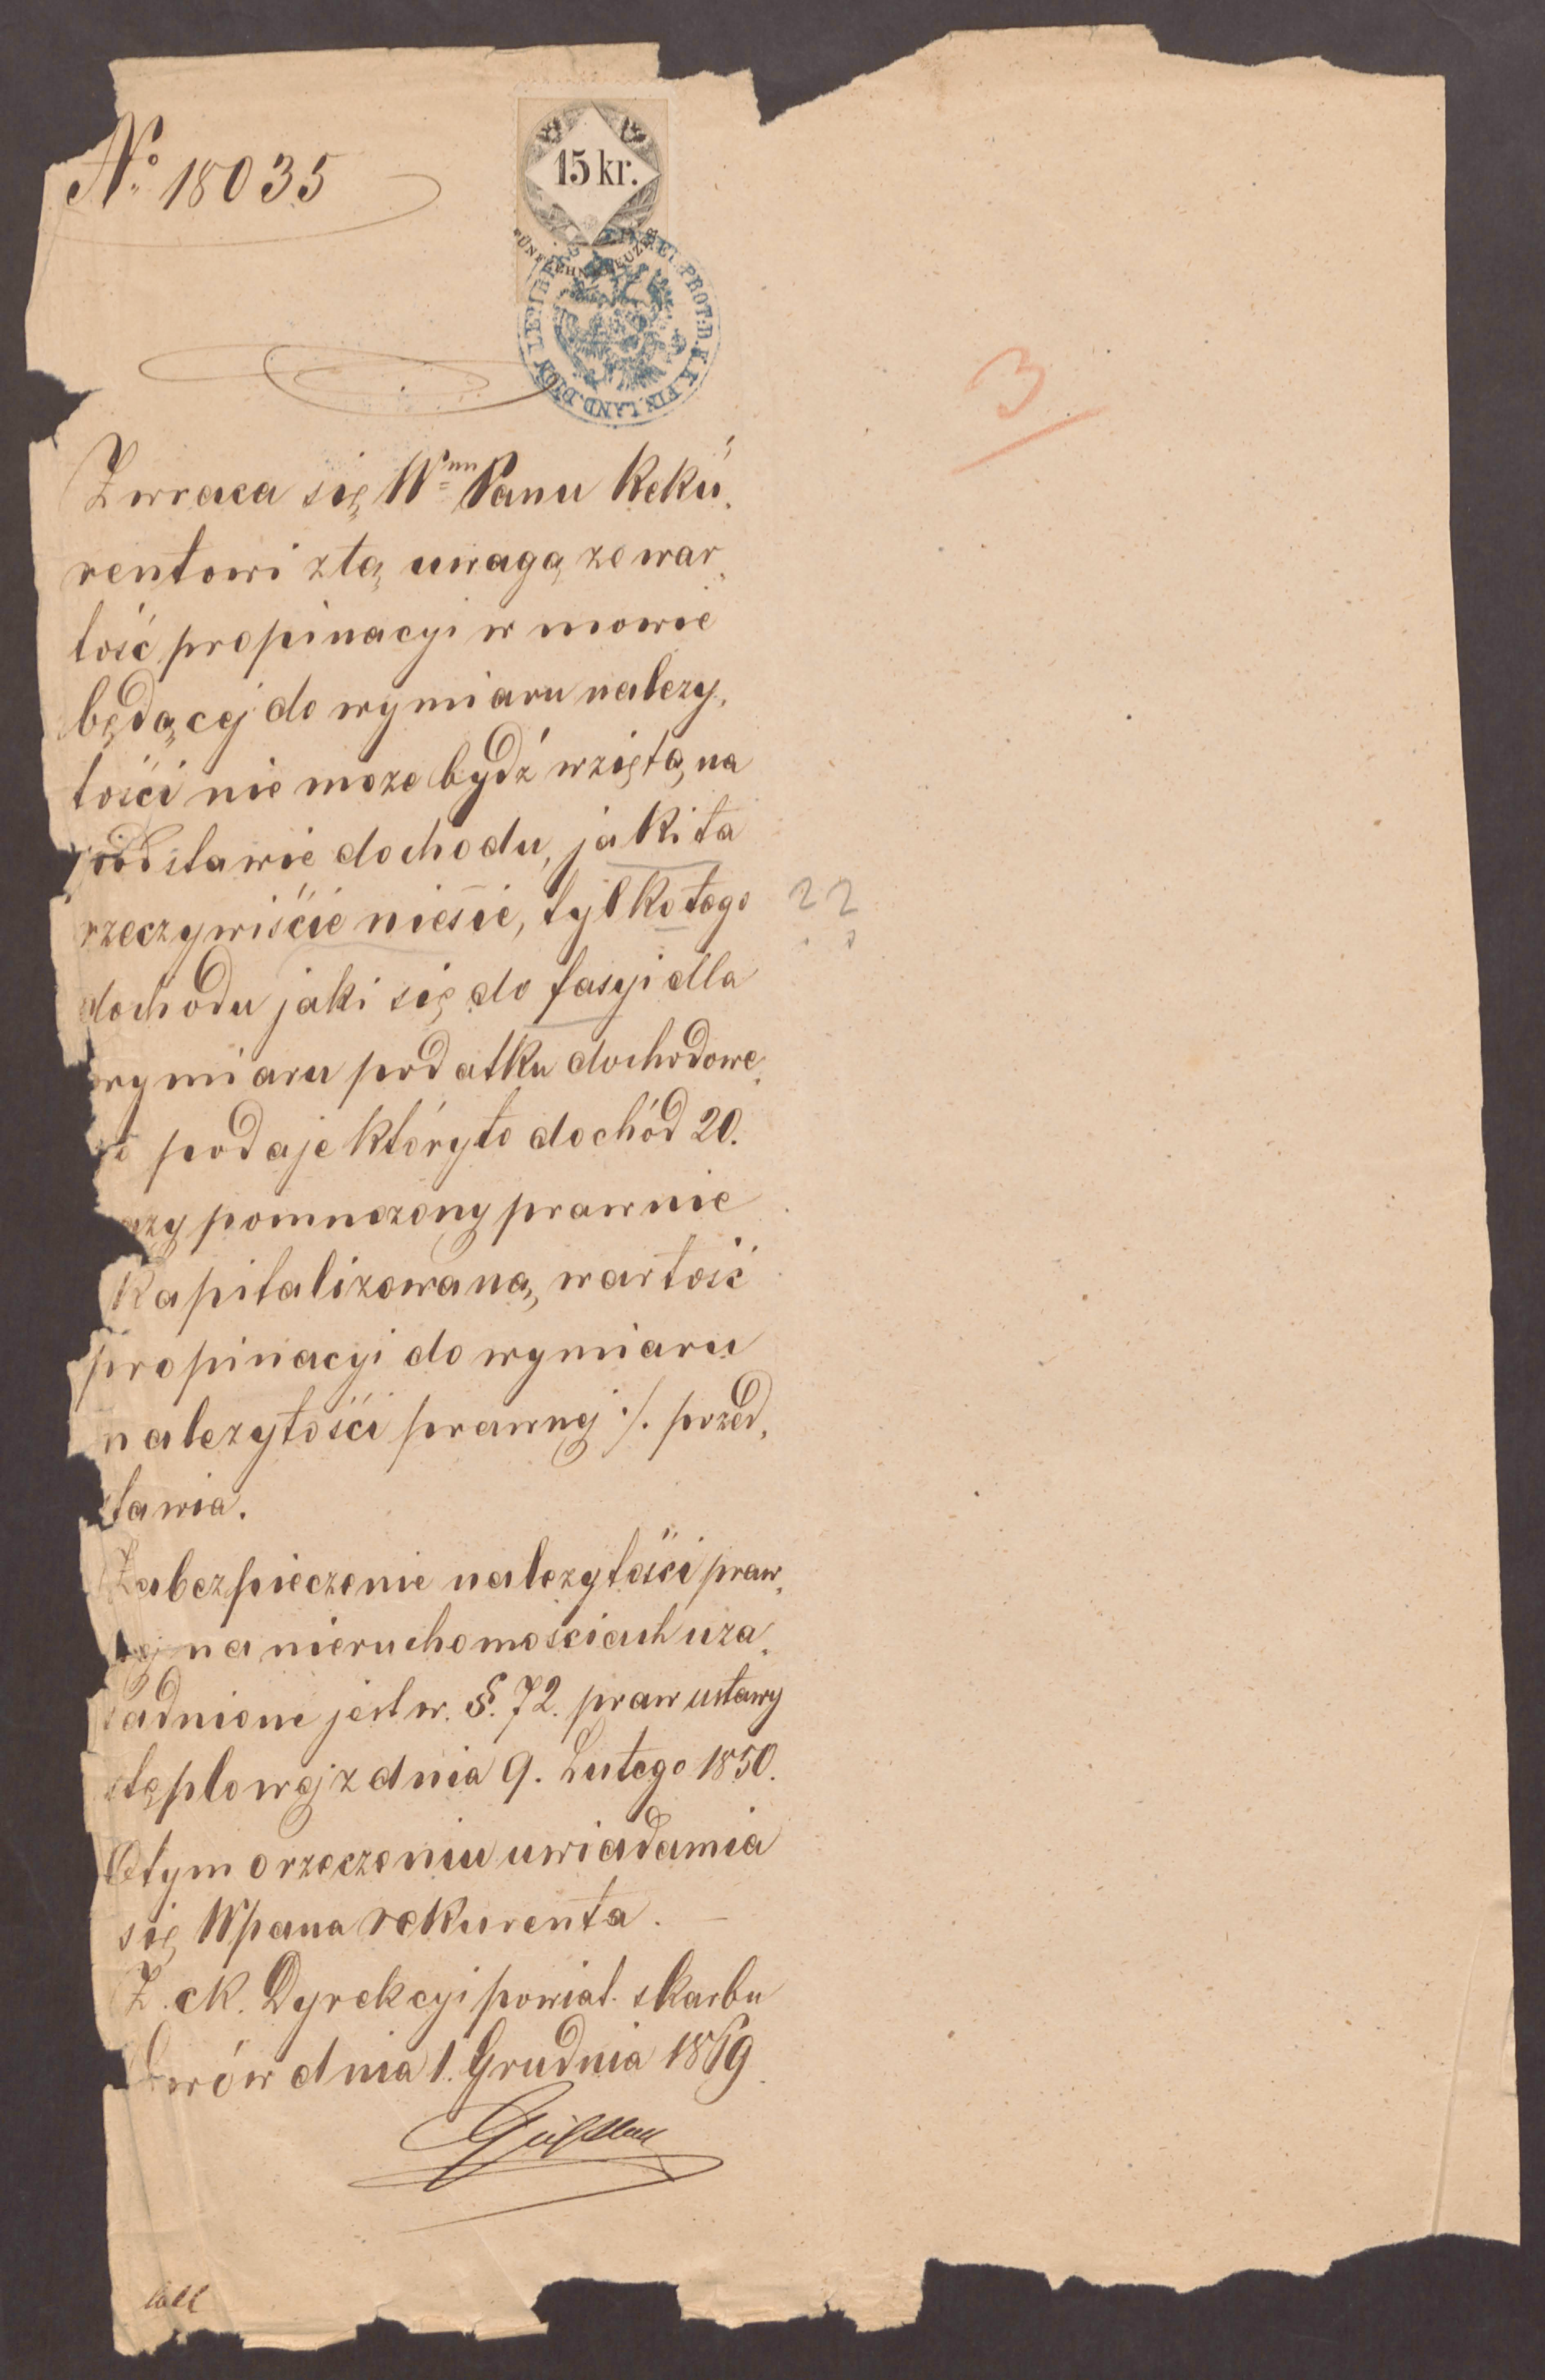 No. 18035
15 kr.
FÜNFZEHN KREUZER
PROT: D. K. K. FIN. LAND. DION
3
Zwraca się Wmu Panu Reku„
rentowi z tą uwagą ze war„
tość propinacyi w mowie
będącej do wymiaru nalezy„
tości nie moze bydź wziętą na
podstawie dochodu, jaki ta
rzeczywiście niesie, tylko tego ??
dochodu jaki się do fasyi dla
wymiaru podatku dochodowe„
go podaje któryto dochód 20.
azy pomnozony prawnie
Kapitalizowaną wartość
propinacyi do wymiaru
nalezytości prawnej ·/. przed„
stawia.
Zabezpieczenie nalezytości praw„
ej na nieruchomościach uza„
sadnione jest w. §. 72. praw ustawy
stęplowej z dnia 9. Lutego 1850.
O tym orzeczeniu uwiadamia
się Wpana rekurenta. —
Z. ck. Dyrekcyi powiat. skarbu
Lwów dnia 1. Grudnia 1869.